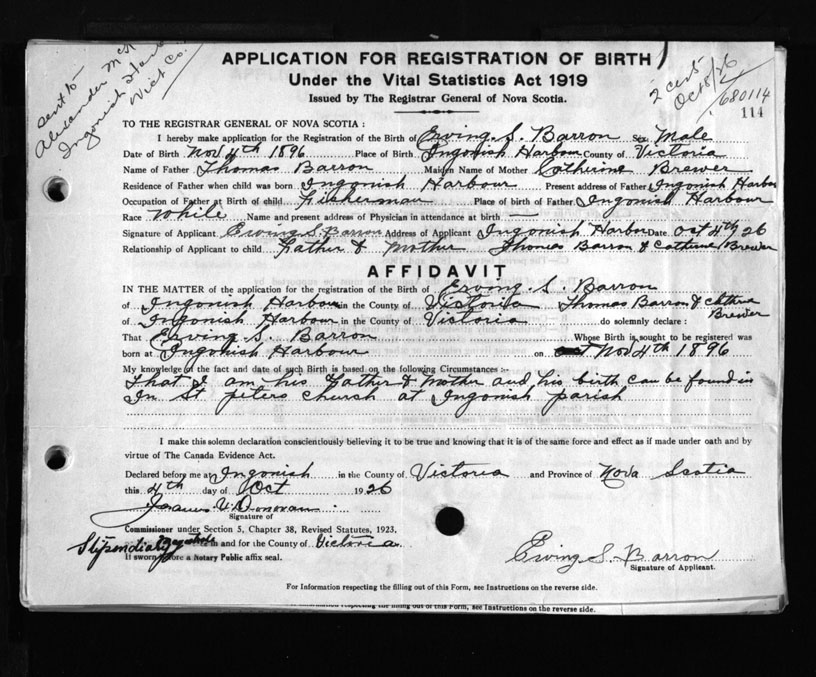 sent to
Alexander Mc
Ingonish Harb
Vict Co.
2 certs
Oct 8/26
680114
114
APPLICATION FOR REGISTRATION OF BIRTH
Under the Vital Statistics Act 1919
Issued by The Registrar General of Nova Scotia.
TO THE REGISTRAR GENERAL OF NOVA SCOTIA :
I hereby make application for the Registration of the Birth of Erving. S. Barron Sex Male
Date of Birth Nov 4th 1896 Place of Birth Ingonish Harbour County of Victoria
Name of Father Thomas Barron Maiden Name of Mother Catherine Brewer
Residence of Father when child was born Ingonish Harbour Present address of Father Ingonish Harbor
Occupation of Father at Birth of child Fisherman Place of birth of Father Ingonish Harbour
Race White Name and present address of Physician in attendance at birth —
Signature of Applicant Erving S. Barron Address of Applicant Ingonish Harbor Date Oct 4th 26
Relationship of Applicant to child Father & Mother Thomas Barron & Catherine Brewer
AFFIDAVIT
IN THE MATTER of the application for the registration of the Birth of Erving. S. Barron
of Ingonish Harbour in the County of Victoria Thomas Barron & Catherine
of Ingonish Harbour in the County of Victoria do solemnly declare : Brewer
That Erving S. Barron Whose Birth is sought to be registered was
born at Ingonish Harbour on Nov 4th 1896
My knowledge of the fact and date of such Birth is based on the following Circumstances :-
That I am his Father & Mother and his birth can be found in
In St peters church at Ingonish parish
I make this solemn declaration conscientiously believing it to be true and knowing that it is of the same force and effect as if made under oath and by
virtue of The Canada Evidence Act.
Declared before me at Ingonish in the County of Victoria and Province of Nova Scotia
this 4th day of Oct 1926
Donovan
Signature of
Commissioner under Section 5, Chapter 38, Revised Statutes, 1923,
Stipendiary in and for the County of Victoria.
If sworn before a Notary Public affix seal.
Erving S. Barron
Signature of Applicant.
For Information respecting the filling out of this Form, see Instructions on the reverse side.
Information respecting the filling out of this Form, see Instructions on the reverse side.